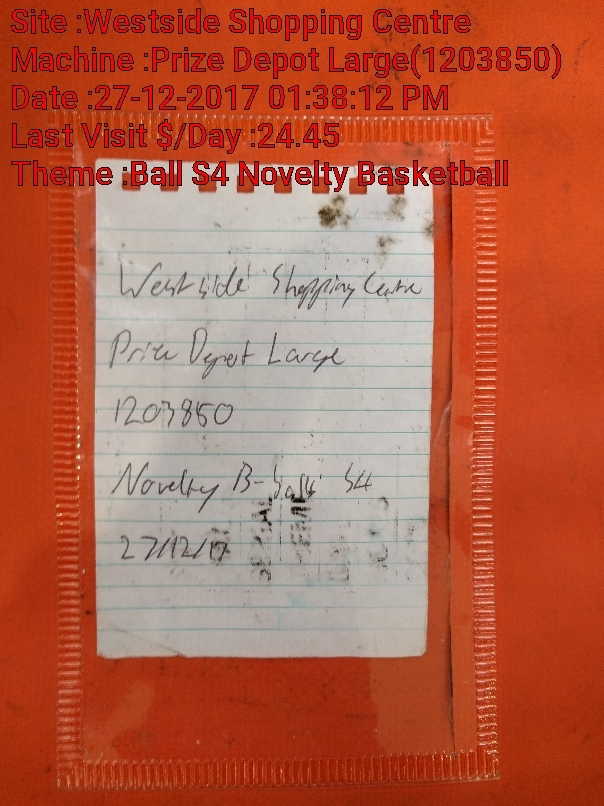 Site :Westside Shopping Centre
Machine :Prize Depot Large(1203850)
Date :27-12-2017 01:38:12 PM
Last Visit $/Day :24.45
Theme :Ball S4 Novelty Basketball
Westside Shopping Centre
Prize Depot Large
1203850
Novelty B-balls S4
27/12/17